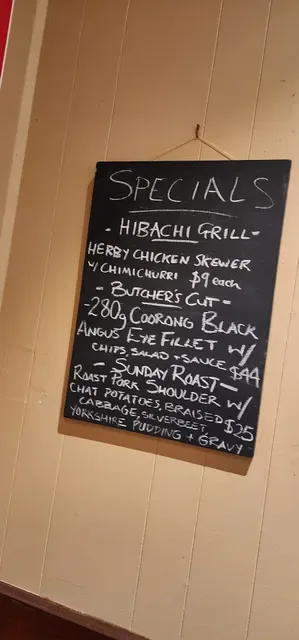 SPECIALS
- HIBACHI GRILL -
HERBY CHICKEN SKEWER
W/ CHIMICHURRI $9 each
- BUTCHER'S CUT -
-280g COORONG BLACK
ANGUS EYE FILLET W/
CHIPS, SALAD + SAUCE $44
- SUNDAY ROAST -
ROAST PORK SHOULDER W/
CHAT POTATOES, BRAISED $25
CABBAGE, SILVERBEET,
YORKSHIRE PUDDING + GRAVY